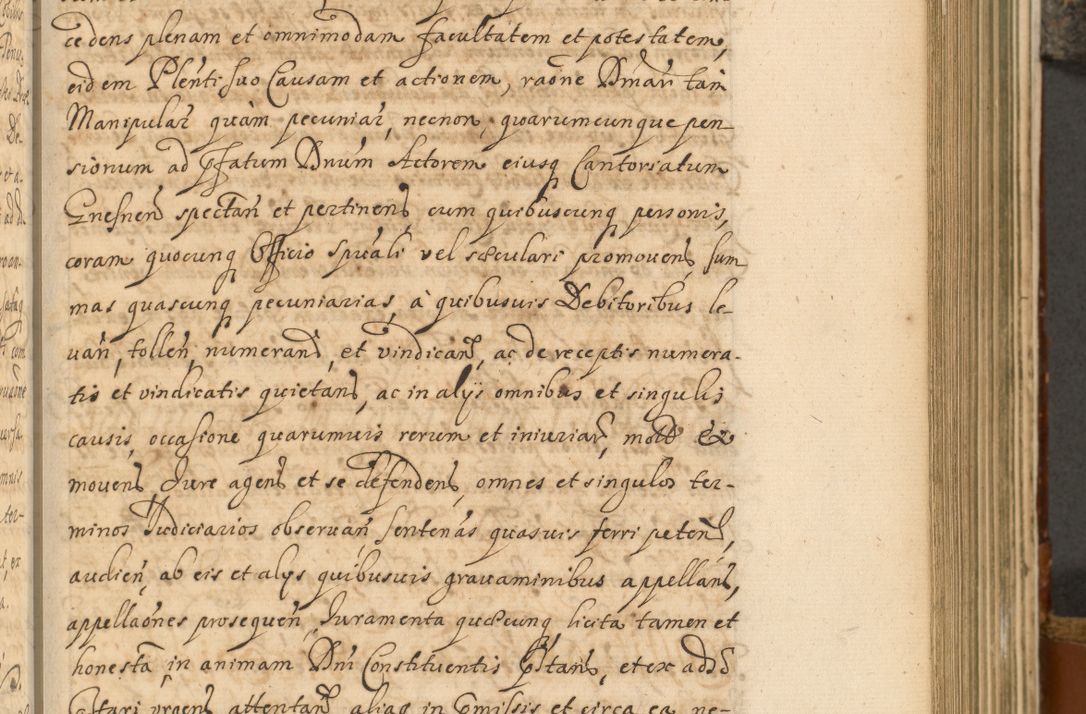 cedens plenam et omnimodam facultatem et potestatem,
eidem Plenti suo Causam et actionem, raőne Dmar tam
Manipular quàm pecuniar, necnon, quarumcunque pen
sionum ad pfatum Dnum Actorem eiusq Cantoriatum
Gnesnen spectan et pertinens cum quibuscunq personis,
coram quocunq Officio spuali vel sæculari promovens, sum
mas quascunq pecuniarias, à quibusuis Debitoribus le-
uan, tollen, numerand, et vindicand, ac de receptis numera-
tis et vindicatis quietand, ac in alijs omnibus et singulis
causis, occasione quarumuis rerum et iniuriar, mott et
mouens, Jure agend et se defendend, omnes et singulos ter-
minos Judiciarios observan, sentenas quasuis ferri petend,
audien, ab eis et alijs quibusuis grauaminibus appellans,
appellaones prosequen, Juramenta quæcunq, licita tamen et
honesta, in animam Dni Constituentis pstand, et ex adso
pstari urgend attentand alias in pmissis et circa ea ne-